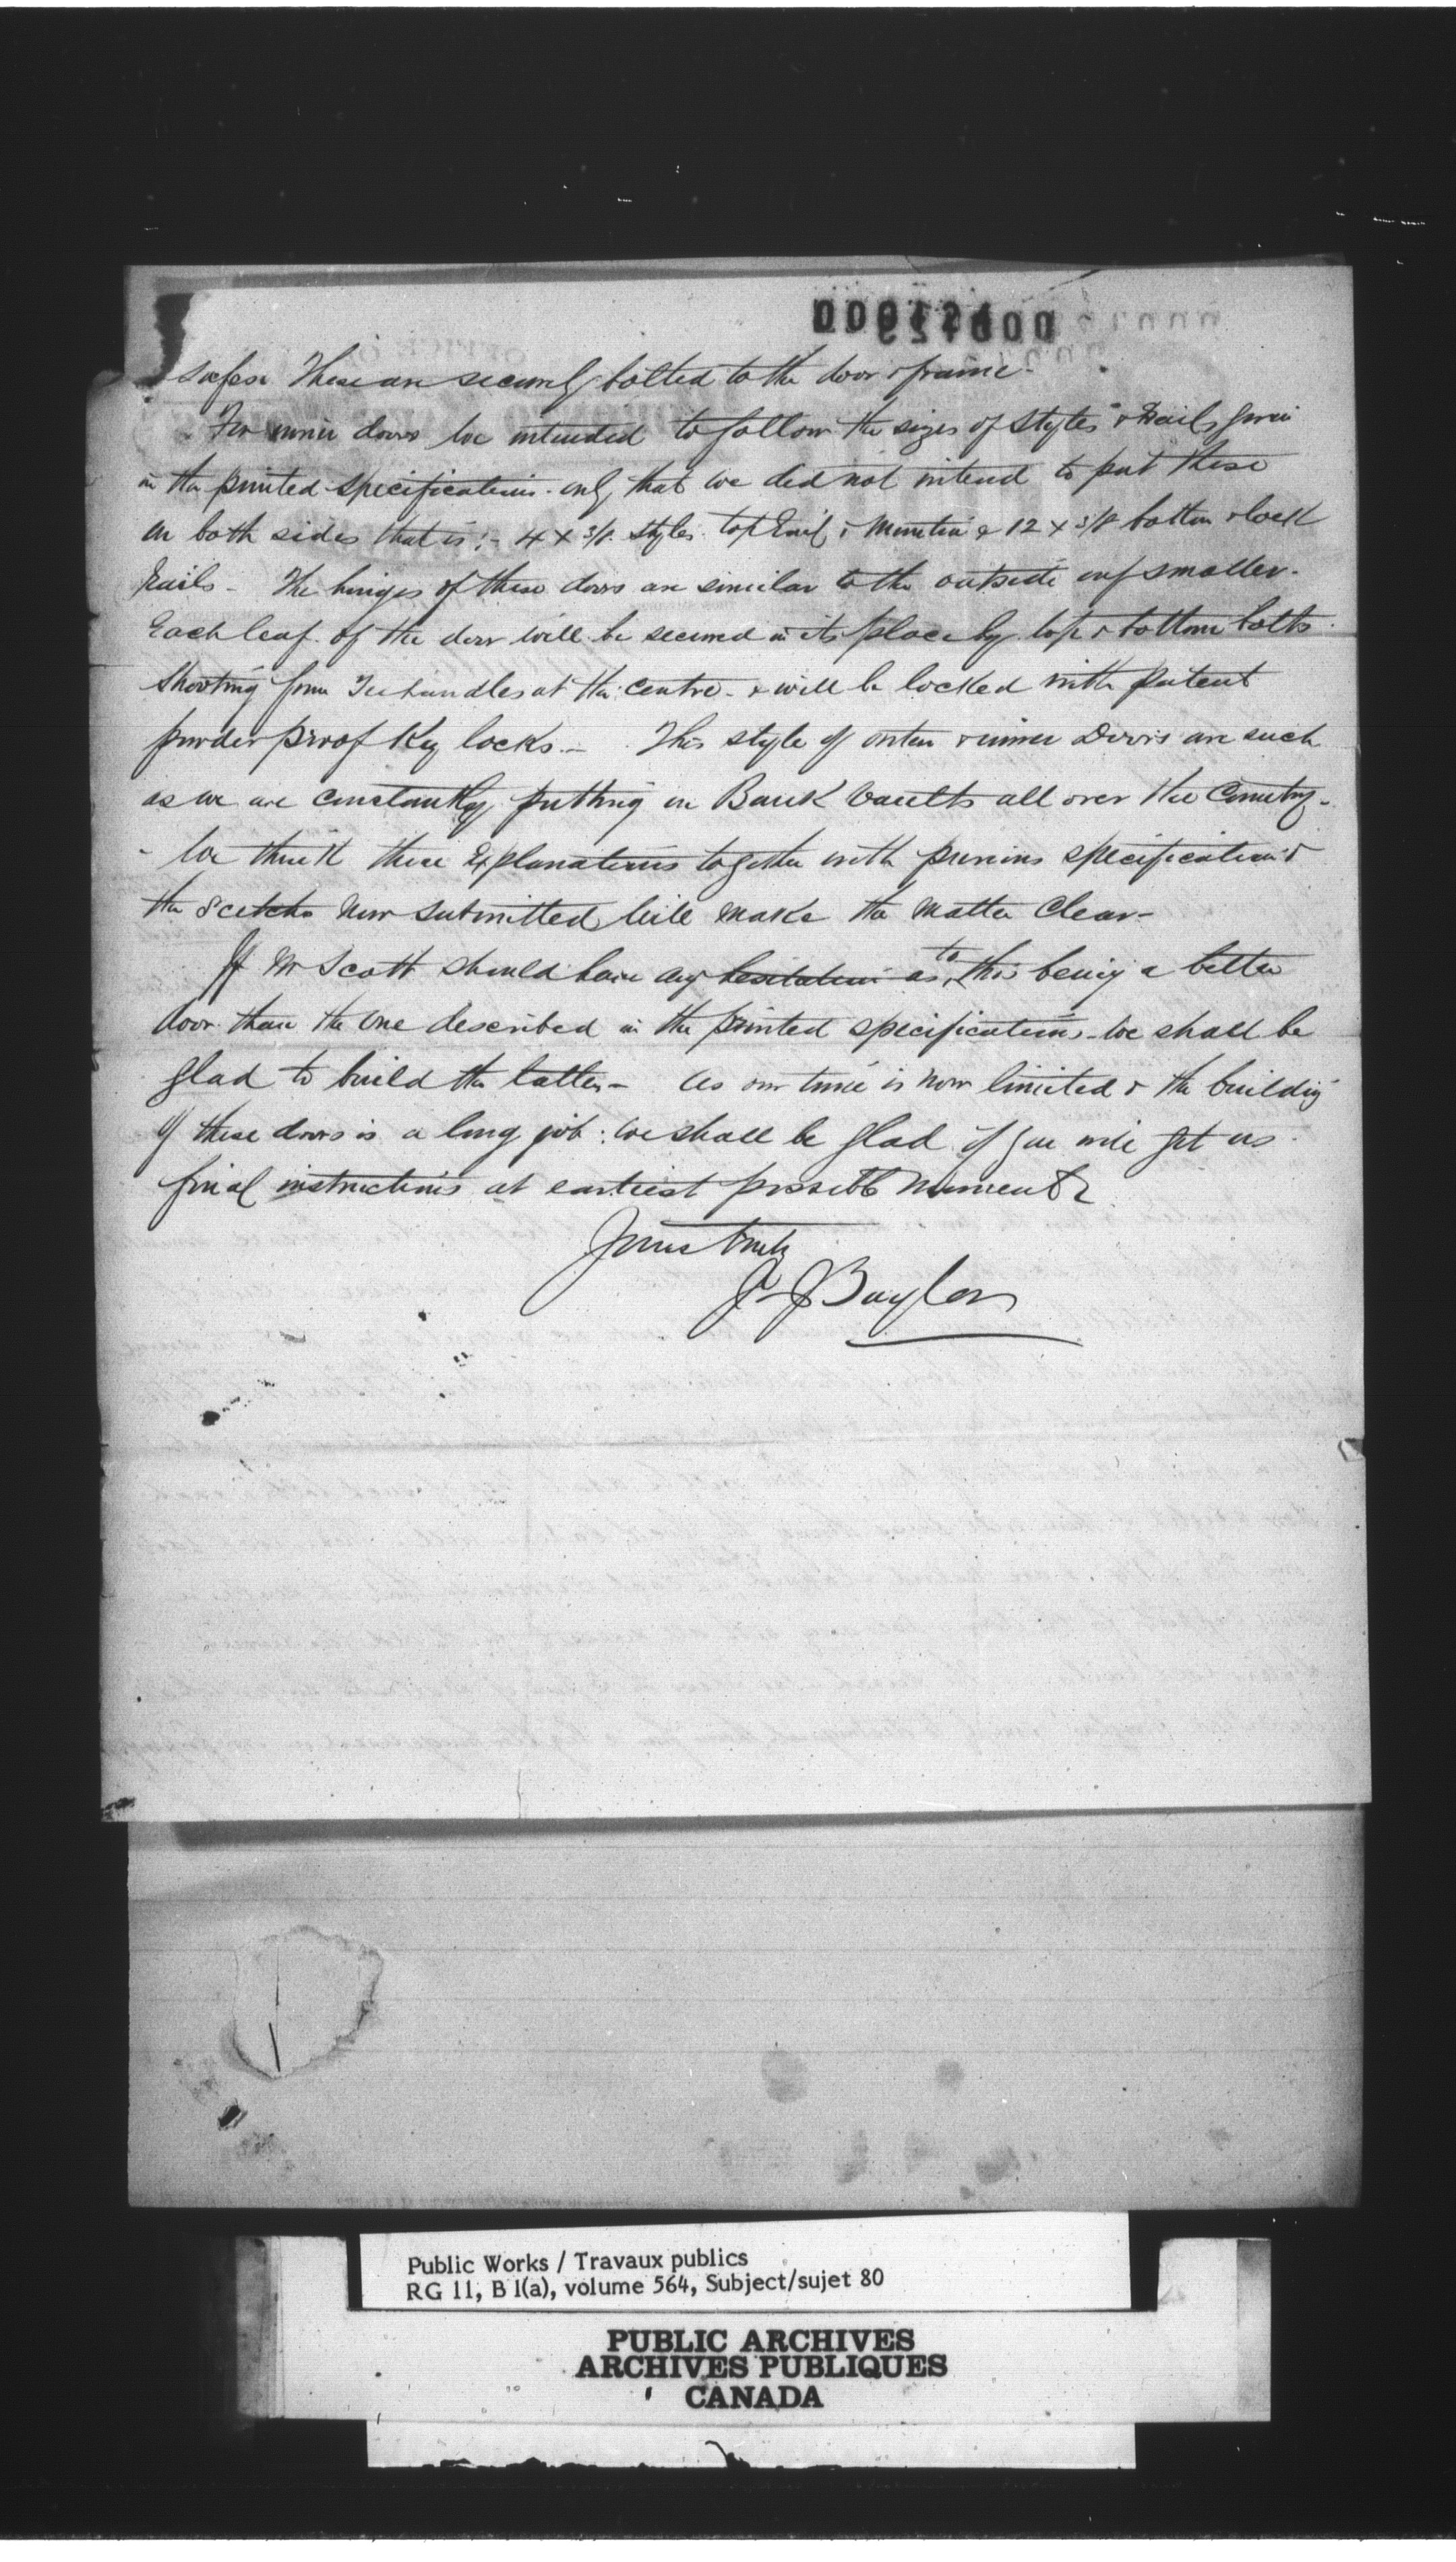 safes. These are securely bolted to the door & frame.
For inner doors we intended to follow the sizes of Styles & Rails given
in the printed specifications. only that we did not intend to put these
on both sides that is :- 4 x 3/8 styles. top Rail & Muntin & 12 x 3/8 bottom & lock
Rails - The hinges of these doors are similar to the outside only smaller.
Each leaf of the door will be secured in its place by top & bottom bolts.
Shooting from Tee handles at the centre - & will be locked with patent
powder proof Key locks. - This style of outer & inner Doors are such
as we are constantly putting on Bank Vaults all over the Country -
- We think these Explanations together with previous specification &
the Scetchs now submitted will make the matter Clear -
If Mr Scott should have any hesitation as to this being a better
door than the one described in the printed specifications - we shall be
glad to build the latter - As our time is now limited & the building
of these doors is a long job : we shall be glad if you will get us
final instructions at earliest possible moment
Yours truly
J & J Taylor
Public Works / Travaux publics
RG 11, B 1(a), volume 564, Subject/sujet 80
PUBLIC ARCHIVES
ARCHIVES PUBLIQUES
CANADA